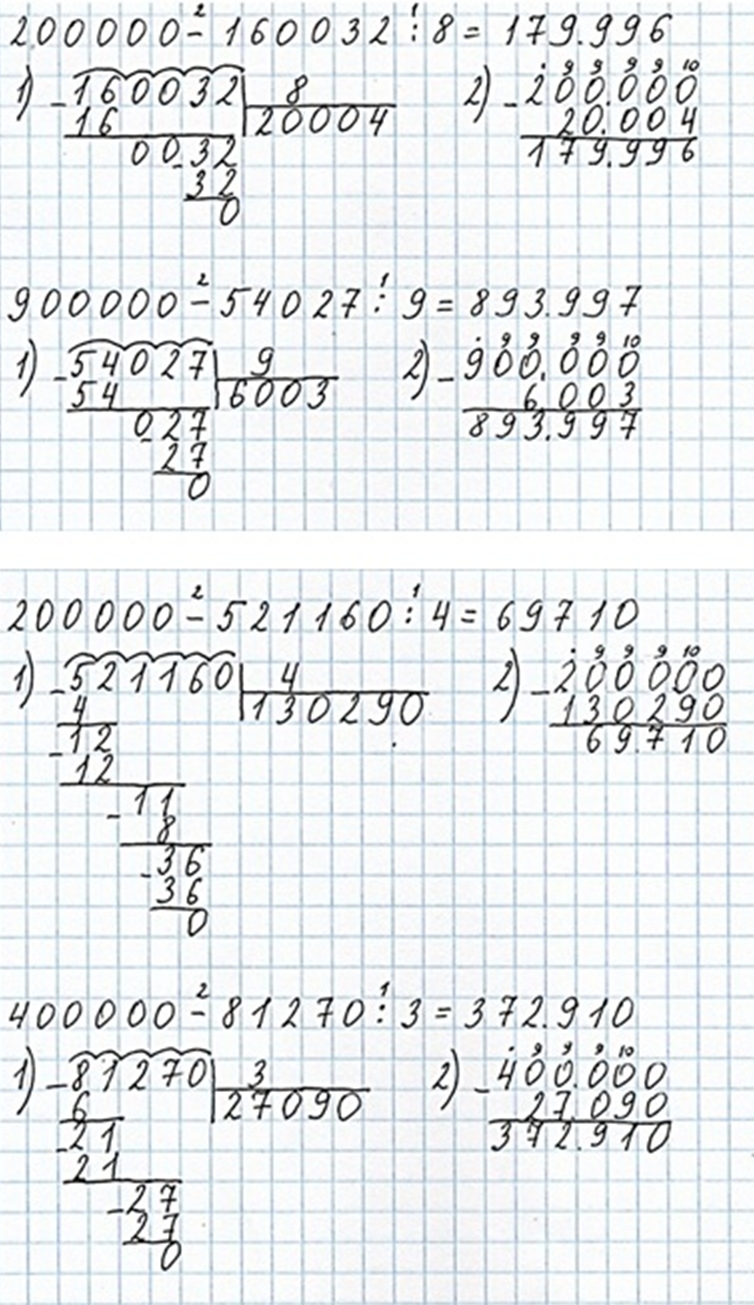 200000 - 160032 : 8 = 179.996
2 1
1) - 160032 | 8 2) - 200.000
9 9 9 9 10
16 20004 20.004
0032 179.996
- 32
0
900000 - 54027 : 9 = 893.997
2 1
1) - 54027 | 9 2) - 900.000
9 9 9 9 10
54 6003 6.003
027 893.997
- 27
0
200000 - 521160 : 4 = 69710
2 1
1) - 521160 | 4 2) - 200000
9 9 9 10
4 130290 130290
- 12 69.710
12
- 11
8
- 36
36
0
400000 - 81270 : 3 = 372.910
2 1
1) - 81270 | 3 2) - 400.000
9 9 9 10
6 27090 27.090
- 21 372.910
21
- 27
27
0